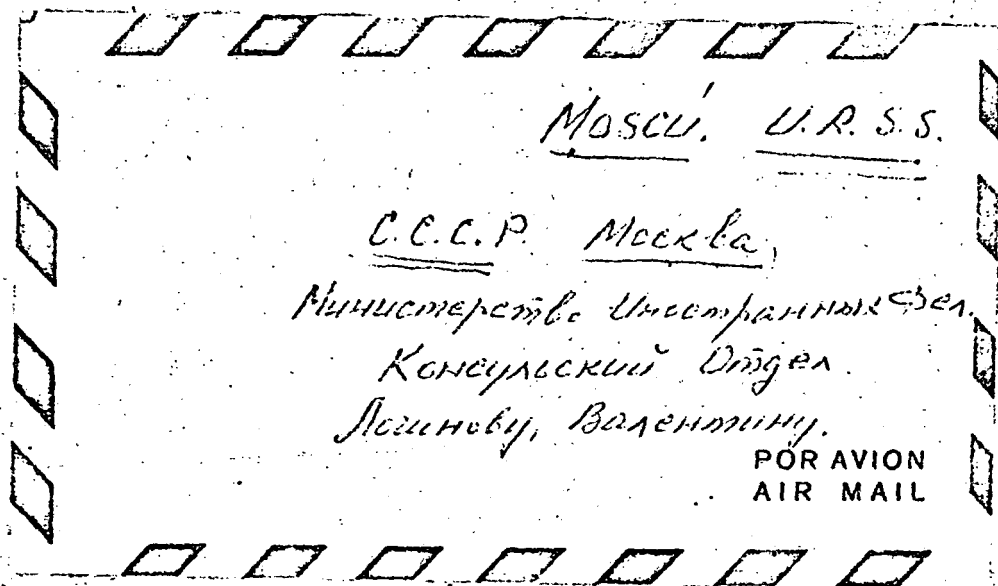 Moscú. U.R.S.S.
С.С.С.Р. Москва,
Министерство Иностранных Дел.
Консульский Отдел.
Логинову, Валентину.
POR AVION
AIR MAIL